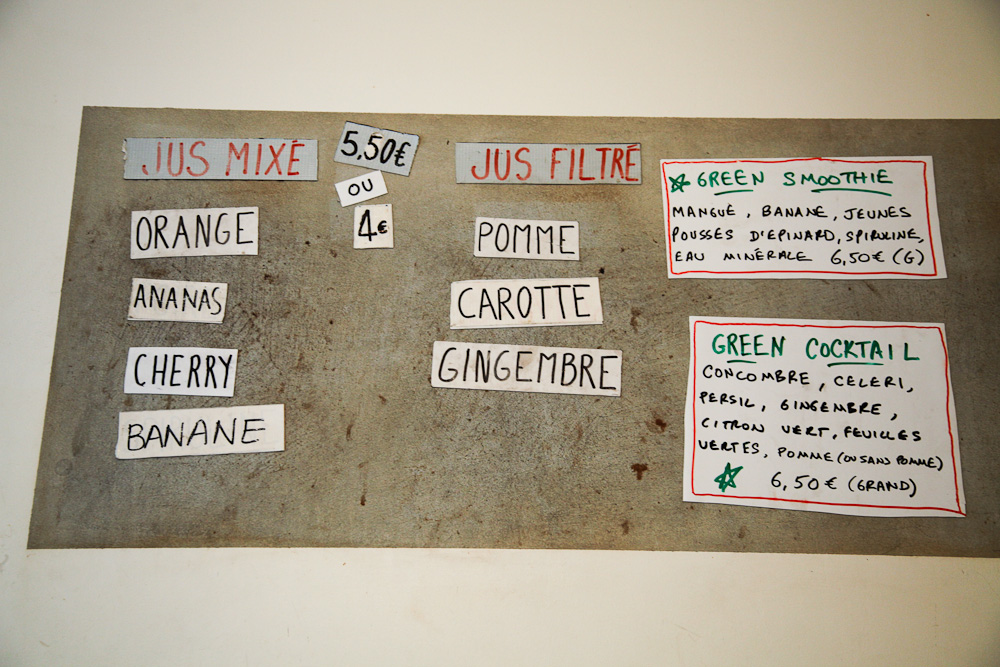 JUS MIXÉ
ORANGE
ANANAS
CHERRY
BANANE
5,50€
OU
4€
JUS FILTRÉ
POMME
CAROTTE
GINGEMBRE
GREEN SMOOTHIE
MANGUE, BANANE, JEUNES
POUSSES D'EPINARD, SPIRULINE,
EAU MINÉRALE 6,50€ (G)
GREEN COCKTAIL
CONCOMBRE, CELERI,
PERSIL, GINGEMBRE,
CITRON VERT, FEUILLES
VERTES, POMME (OU SANS POMME)
6,50€ (GRAND)